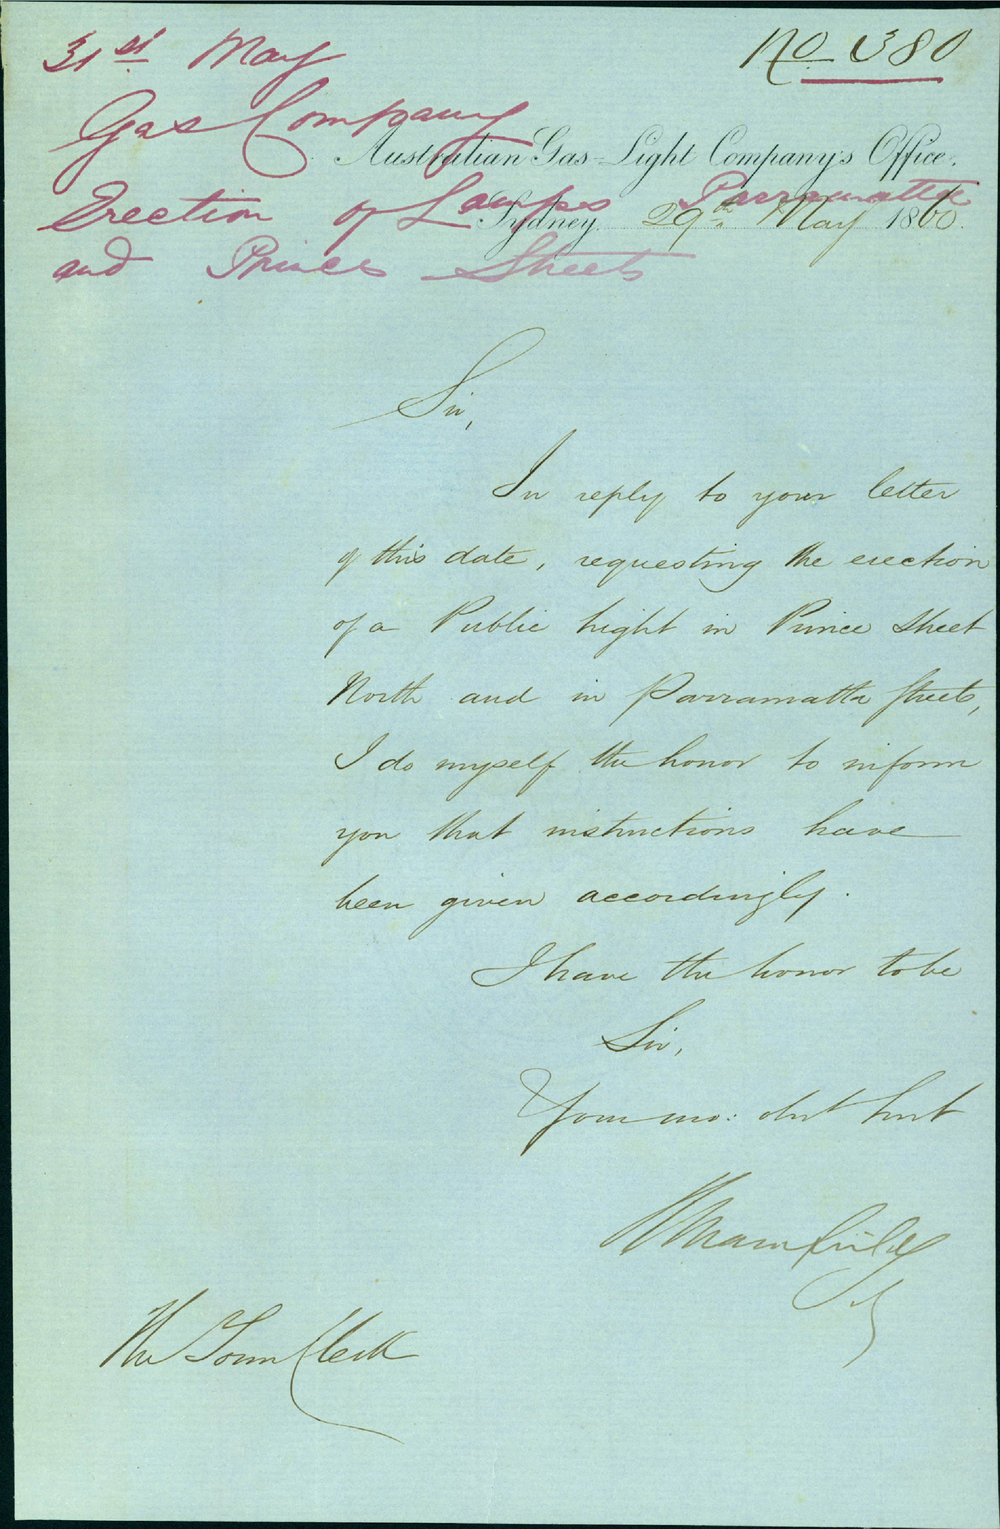 31st May
No 380
Gas Company
Australian Gas-Light Company's Office,
Erection of Lamps Parramatta
Sydney 29th May 1860.
and Princes Streets
Sir,
In reply to your letter
of this date, requesting the erection
of a Public light in Prince Street
North and in Parramatta Streets,
I do myself the honor to inform
you that instructions have
been given accordingly.
I have the honor to be
Sir,
Your mo: obdt Servt
The Town Clerk